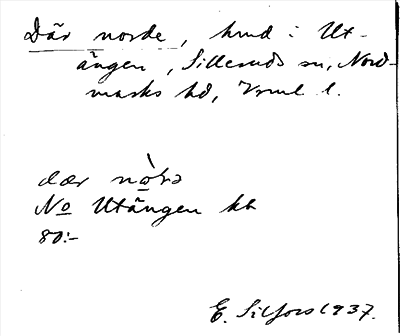 Där norde, hmd i Ut-
ängen, Silleruds sn, Nord-
marks hd, Vrml l.
dær no̲rə
No Utängen kb
80:-
E. Silfors 1937.